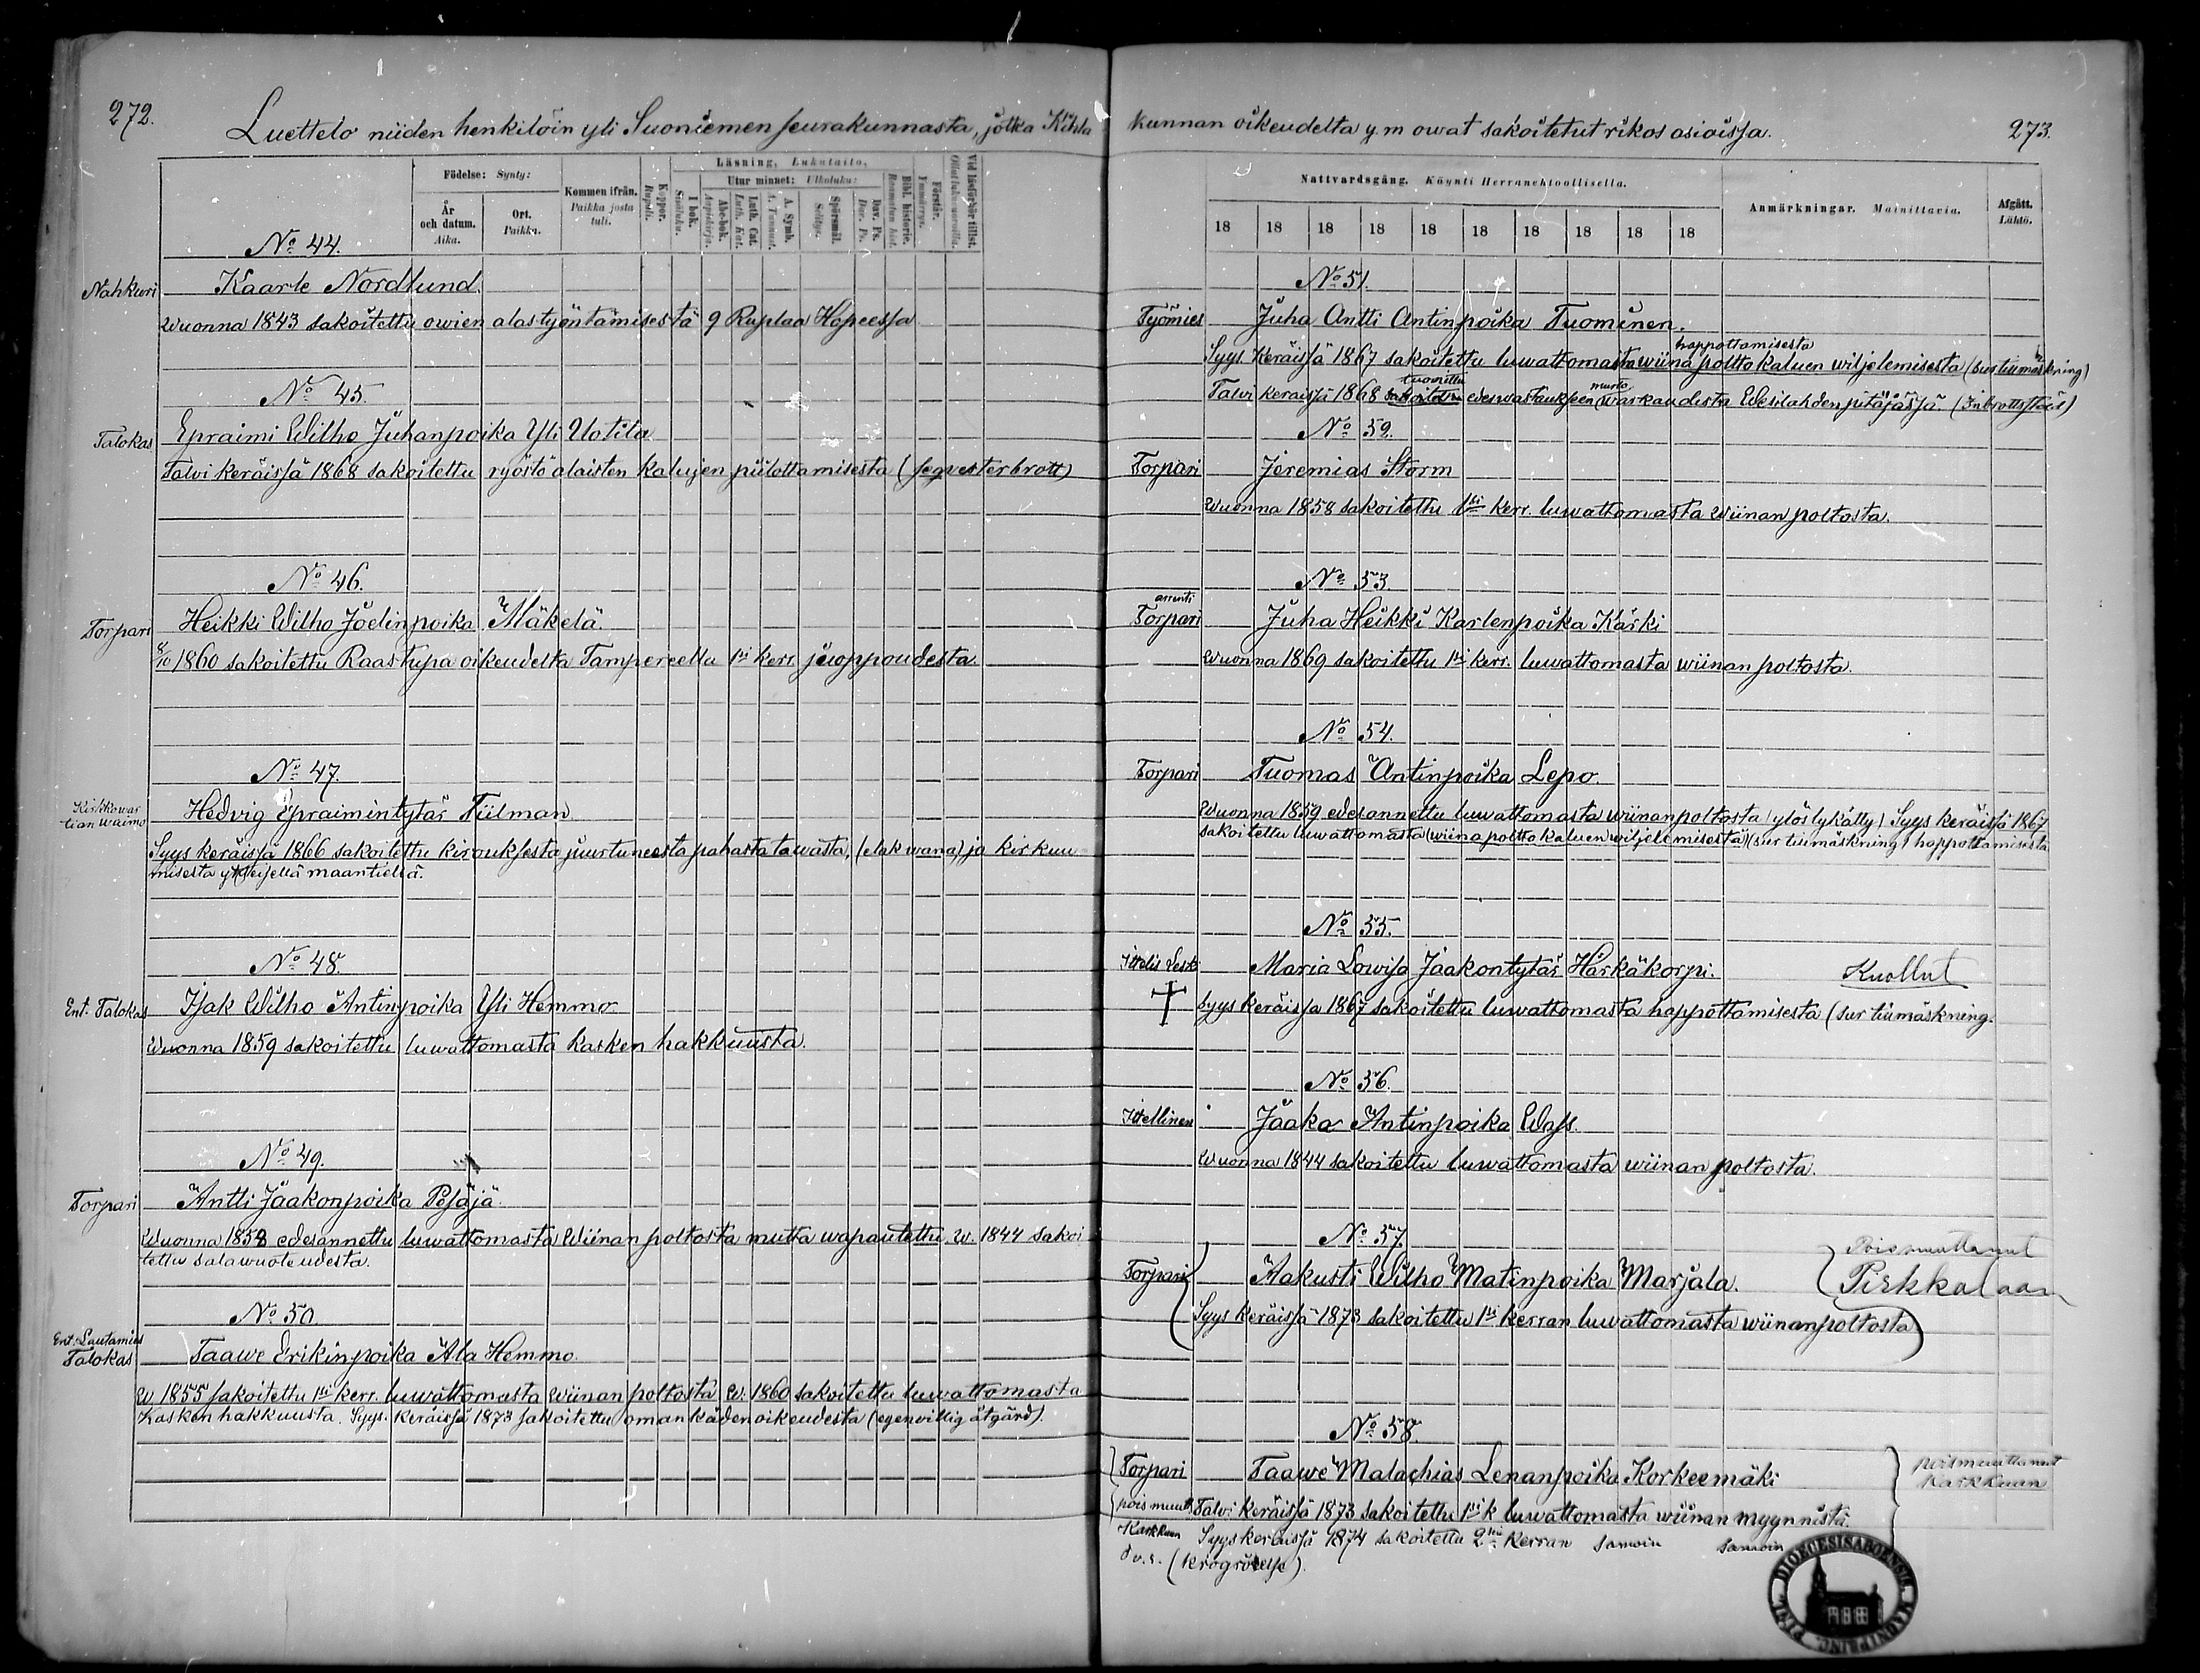 272.
Luettelo niiden henkilöin yli Suoniemen seurakunnasta, jotka Kihla
Födelse: Synty:
År och datum. Aika.
Ort. Paikka.
Kommen ifrån. Paikka josta tuli.
Koppor. Rupuli.
Läsning, Lukutaito,
I bok. Sisäluku.
Utur minnet: Ulkoluku:
Abc-bok. Aapiskirja.
Luth. Cat. Luth. Kat.
A. Symb. A. Tunnust.
Spörsmål. Selitys.
Dav. Ps. Dav. Ps.
Bibl. historie. Raamatun hist.
Förstår. Ymmärrys.
Vid läsförhör tillst. Ollut lukuwuoroilla.
No 44.
Nahkuri Kaarle Nordlund.
Wuonna 1843 sakoitettu owien alastyöntämisestä 9 Ruplaa Hopeessa
No 45.
Talokas Epraimi Wilho Juhanpoika Yli Uotila
Talvi keräissä 1868 sakoitettu ryöstö alaisten kalujen piilottamisesta (seqvesterbrott)
No 46.
Torpari Heikki Wilho Joelinpoika Mäkelä.
8/10 1860 sakoitettu Raastupa oikeudelta Tampereella 1si kerr. juoppoudesta.
No 47.
Kirkkowar
tian waimo Hedvig Epraimintytär Tiilman
Syys keräissä 1866 sakoitettu kirouksesta juurtuneesta pahasta tawasta, (elak wana) ja kirkuu
misesta yleisellä maantiellä.
No 48.
Ent. Talokas Isak Wilho Antinpoika Yli Hemmo
Wuonna 1859 sakoitettu luwattomasta kasken hakkuusta.
No 49.
Torpari Antti Jaakonpoika Pesäjä.
Wuonna 1858 edesannettu luwattomasta Wiinan poltosta mutta wapautettu. w. 1844 sakoi
tettu salawuoteudesta.
No 50
Ent. Lautamies
Talokas Taawe Erikinpoika Ala Hemmo.
W. 1855 sakoitettu 1si kerr. luwattomasta wiinan poltosta W. 1860 sakoitettu luwattomasta
Kasken hakkuusta. Syys. keräissä 1873 sakoitettu oman käden oikeudesta (egenvillig åtgärd).
kunnan oikeudelta y.m owat sakoitetut rikos asioissa. 273.
Nattvardsgång. Käynti Herranehtoollisella.
18 18 18 18 18 18 18 18 18 18
Anmärkningar. Mainittavia.
Afgått. Lähtö.
No 51.
Työmies Juha Antti Antinpoika Tuominen.
happottamisesta
Syys. Keräissä 1867 sakoitettu luwattomasta wiina poltto kaluen wiljelemisesta (surtillmäskning)
tuomittu murto
Talvi keraissä 1868 sakoitettu edeswastaukseen warkaudesta Wesilahden pitäjässä. (Inbrottstöld)
No 52.
Torpari Jeremias Storm
Wuonna 1858 sakoitettu 1si kerr. luwattomasta wiinan poltosta.
No 53.
arrenti
Torpari Juha Heikki Karlenpoika Kärki
Wuonna 1869 sakoitettu 1si kerr. luwattomasta wiinan poltosta.
No 54.
Torpari Tuomas Antinpoika Lepo.
Wuonna 1859 edesannettu luwattomasta wiinanpoltosta (ylöslykätty) Syys keräissä 1867
sakoitettu luwattomasta (wiina poltto kaluen wiljelemisestä) (sur tillmäskning) happottamisesta
No 55.
Ittelis Leski Maria Lowisa Jaakontytär Härkäkorpi. Kuollut
Syys keräissä 1867 sakoitettu luwattomasta happottamisesta (sur tillmäskning.
No 56.
Ittellinen Jaako Antinpoika Wass.
Wuonna 1844 sakoitettu luwattomasta wiinan poltosta.
No 57.
Torpari Aakusti Wilho Matinpoika Marjala. Pois muuttanut
Pirkkalaan
Syys keräissä 1873 sakoitettu 1si kerran luwattomasta wiinanpoltosta
No 58.
Torpari Taawe Malachias Lenanpoika Korkeemäki poismuuttanut
Karkkuun
pois muutt. Talvi keräissä 1873 sakoitettu 1si k luwattomasta wiinan myynnistä.
Karkkuun Syyskeräissä 1874 sakoitettu 2si Kerran samoin samoin
d v. s. (krögrörelse).
DIOECESIS ABOENSIS MAGNI PRINC.